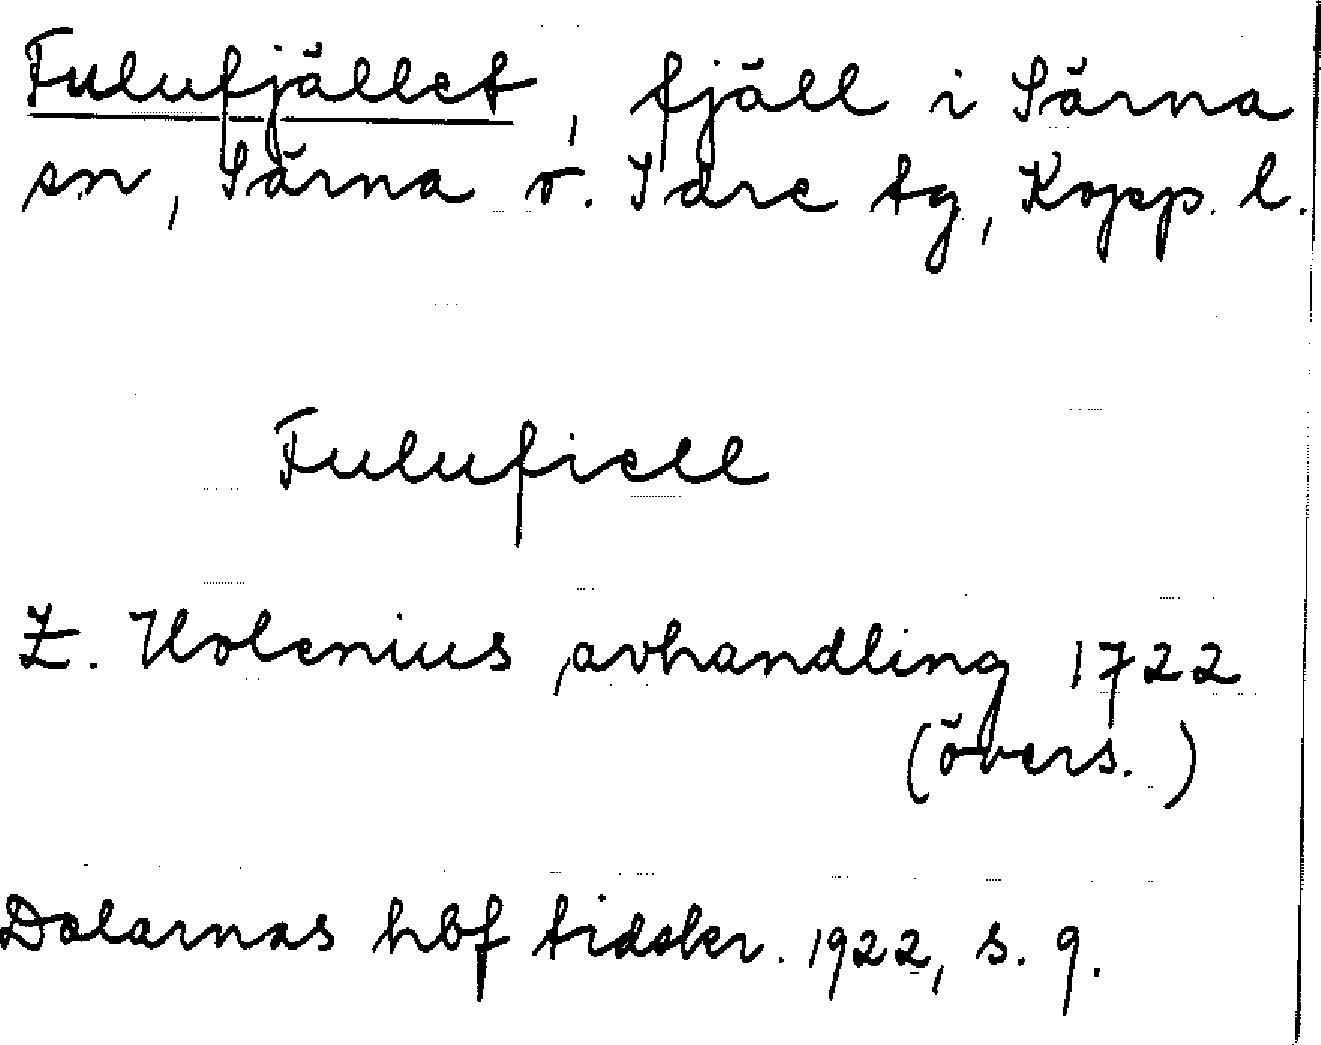 Fulufjället, fjäll i Särna
sn, Särna o. Idre tg, Kopp. l.
Fulufiell
Z. Holenius, avhandling 1722
(övers.)
Dalarnas hbf tidskr. 1922, s. 9.